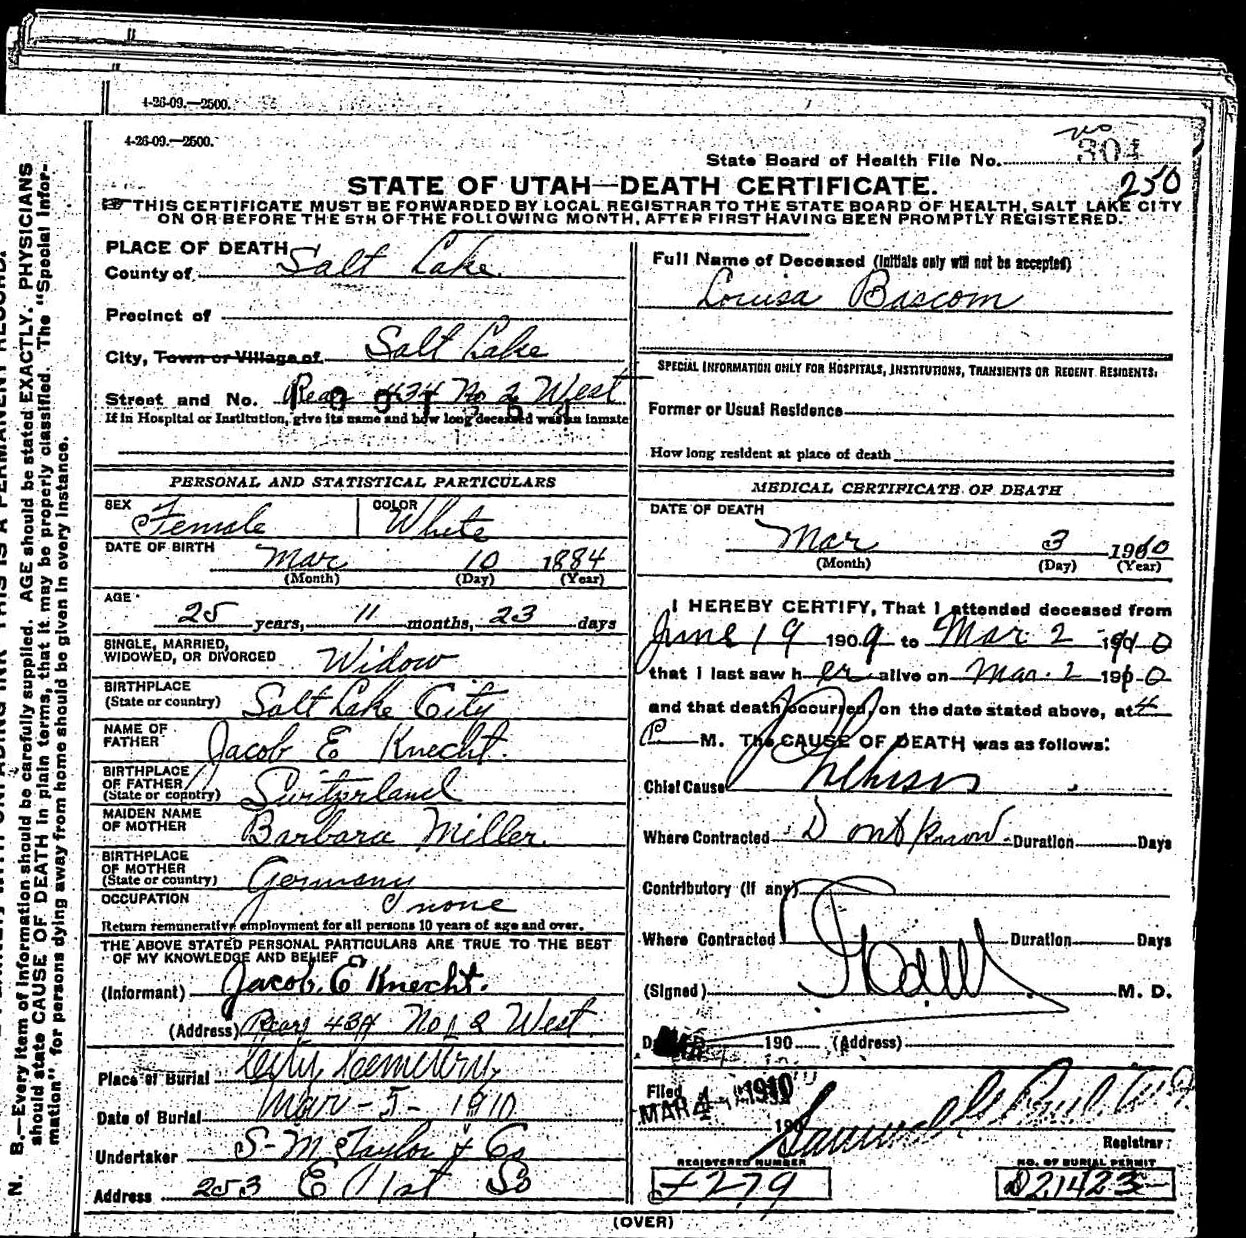 4-26-09.—2500.
4-26-09.—2500.
State Board of Health File No. 304
250
STATE OF UTAH—DEATH CERTIFICATE.
THIS CERTIFICATE MUST BE FORWARDED BY LOCAL REGISTRAR TO THE STATE BOARD OF HEALTH, SALT LAKE CITY
ON OR BEFORE THE 5TH OF THE FOLLOWING MONTH, AFTER FIRST HAVING BEEN PROMPTLY REGISTERED.
PLACE OF DEATH
County of Salt Lake
Precinct of
City, Town or Village of Salt Lake
Street and No. Rear 434 No 2 West
If in Hospital or Institution, give its name and how long deceased was an inmate
PERSONAL AND STATISTICAL PARTICULARS
SEX Female COLOR White
DATE OF BIRTH Mar 10 1884
(Month) (Day) (Year)
AGE 25 years, 11 months, 23 days
SINGLE, MARRIED,
WIDOWED, OR DIVORCED Widow
BIRTHPLACE
(State or country) Salt Lake City
NAME OF
FATHER Jacob E Knecht.
BIRTHPLACE
OF FATHER
(State or country) Switzerland
MAIDEN NAME
OF MOTHER Barbara Miller.
BIRTHPLACE
OF MOTHER
(State or country) Germany
OCCUPATION none
Return remunerative employment for all persons 10 years of age and over.
THE ABOVE STATED PERSONAL PARTICULARS ARE TRUE TO THE BEST
OF MY KNOWLEDGE AND BELIEF
(Informant) Jacob. E Knecht.
(Address) Rear 434 No 2 West
Place of Burial City Cemetery
Date of Burial Mar-5-1910
Undertaker S-M Taylor & Co
Address 253 E 1st So
Full Name of Deceased (Initials only will not be accepted)
Louisa Bascom
SPECIAL INFORMATION ONLY FOR HOSPITALS, INSTITUTIONS, TRANSIENTS OR RECENT RESIDENTS.
Former or Usual Residence
How long resident at place of death
MEDICAL CERTIFICATE OF DEATH
DATE OF DEATH
Mar 3 1910
(Month) (Day) (Year)
I HEREBY CERTIFY, That I attended deceased from
June 19 1909 to Mar. 2 1910
that I last saw her alive on Mar. 2 1910
and that death occurred, on the date stated above, at 4
P M. The CAUSE OF DEATH was as follows:
Chief Cause
Where Contracted Dont know Duration Days
Contributory (If any)
Where Contracted Duration Days
(Signed) M. D.
190 (Address)
Filed
MAR 4 1910
190
Registrar
REGISTERED NUMBER
279
NO. OF BURIAL PERMIT
D21423
(OVER)
N. B.—Every item of information should be carefully supplied. AGE should be stated EXACTLY. PHYSICIANS
should state CAUSE OF DEATH in plain terms, that it may be properly classified. The "Special Infor-
mation" for persons dying away from home should be given in every instance.